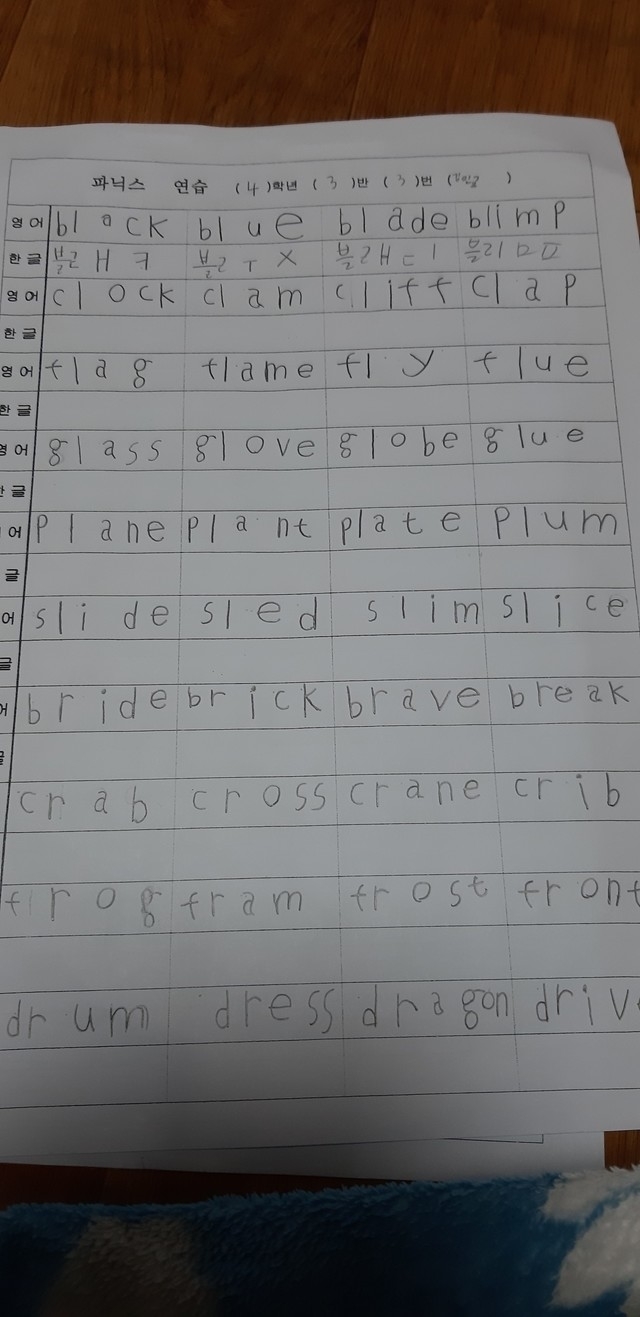 파닉스 연습 (4)학년 (3)반 (3)번 ( )
영어 black blue blade blimp
한글 블ㄹㅐㅋ 블ㄹㅜX 블ㄹㅐㄷㅣ 블리ㅁㅍ
영어 clock clam cliff clap
한글
영어 flag flame fly flue
한글
영어 glass glove globe glue
한글
어 plane plant plate plum
글
어 slide sled slim slice
글
어 bride brick brave break
글
crab cross crane crib
frog fram frost front
drum dress dragon driv